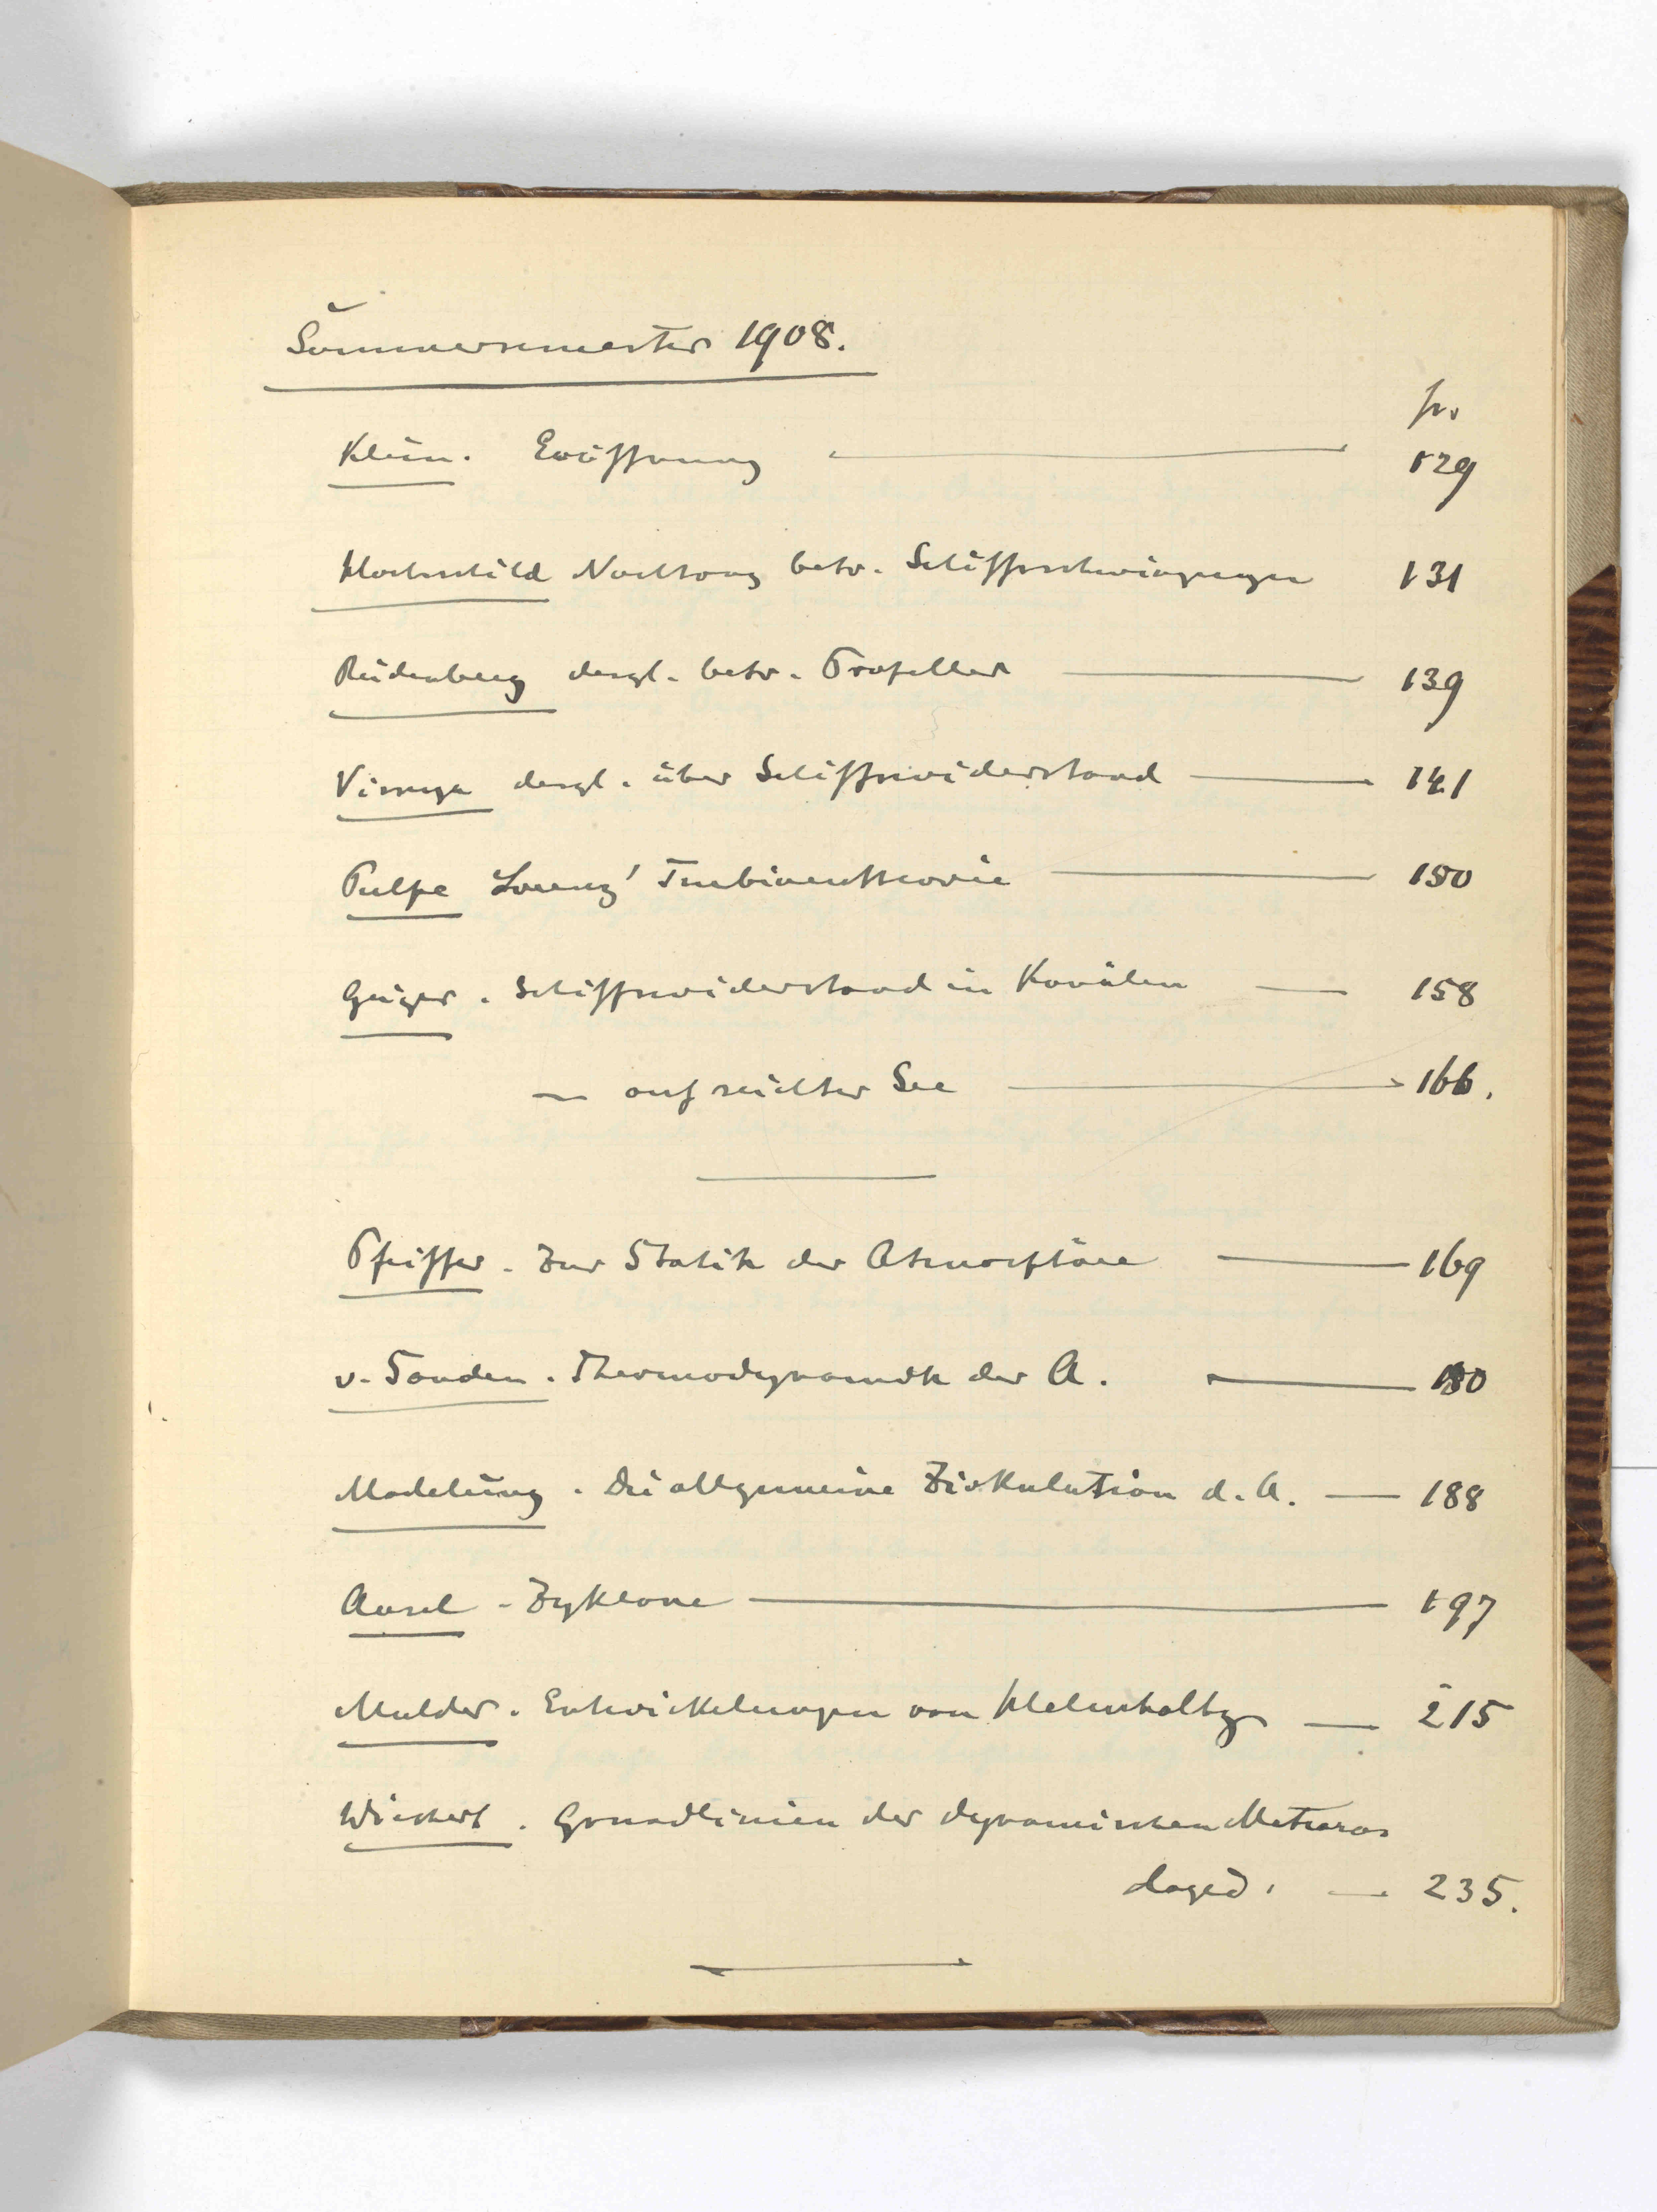 Sommersemester 1908.
p.
Klein. Eröffnung — 129
Hochschild Nachtrag betr. Schiffsschwingungen 131
Rüdenberg desgl. betr. Propeller — 139
desgl. über Schiffswiderstand — 141
Pulpe Lorenz' Turbinentheorie — 150
Geiger. Schiffswiderstand in Kanälen — 158
— auf seichter See — 166.
Pfeiffer. Zur Statik der Atmosphäre — 169
v. Sanden. Thermodynamik der A. — 180
Madelung. Die allgemeine Zirkulation d. A. — 188
Ansel - Zyklone — 197
Mulder. Entwickelungen von Helmholtz — 215
Wiechert. Grundlinien der dynamischen Meteoro-
logie. — 235.